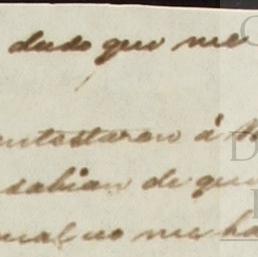 dudo que me
ontestaran á
sabian de que
ual no me ha